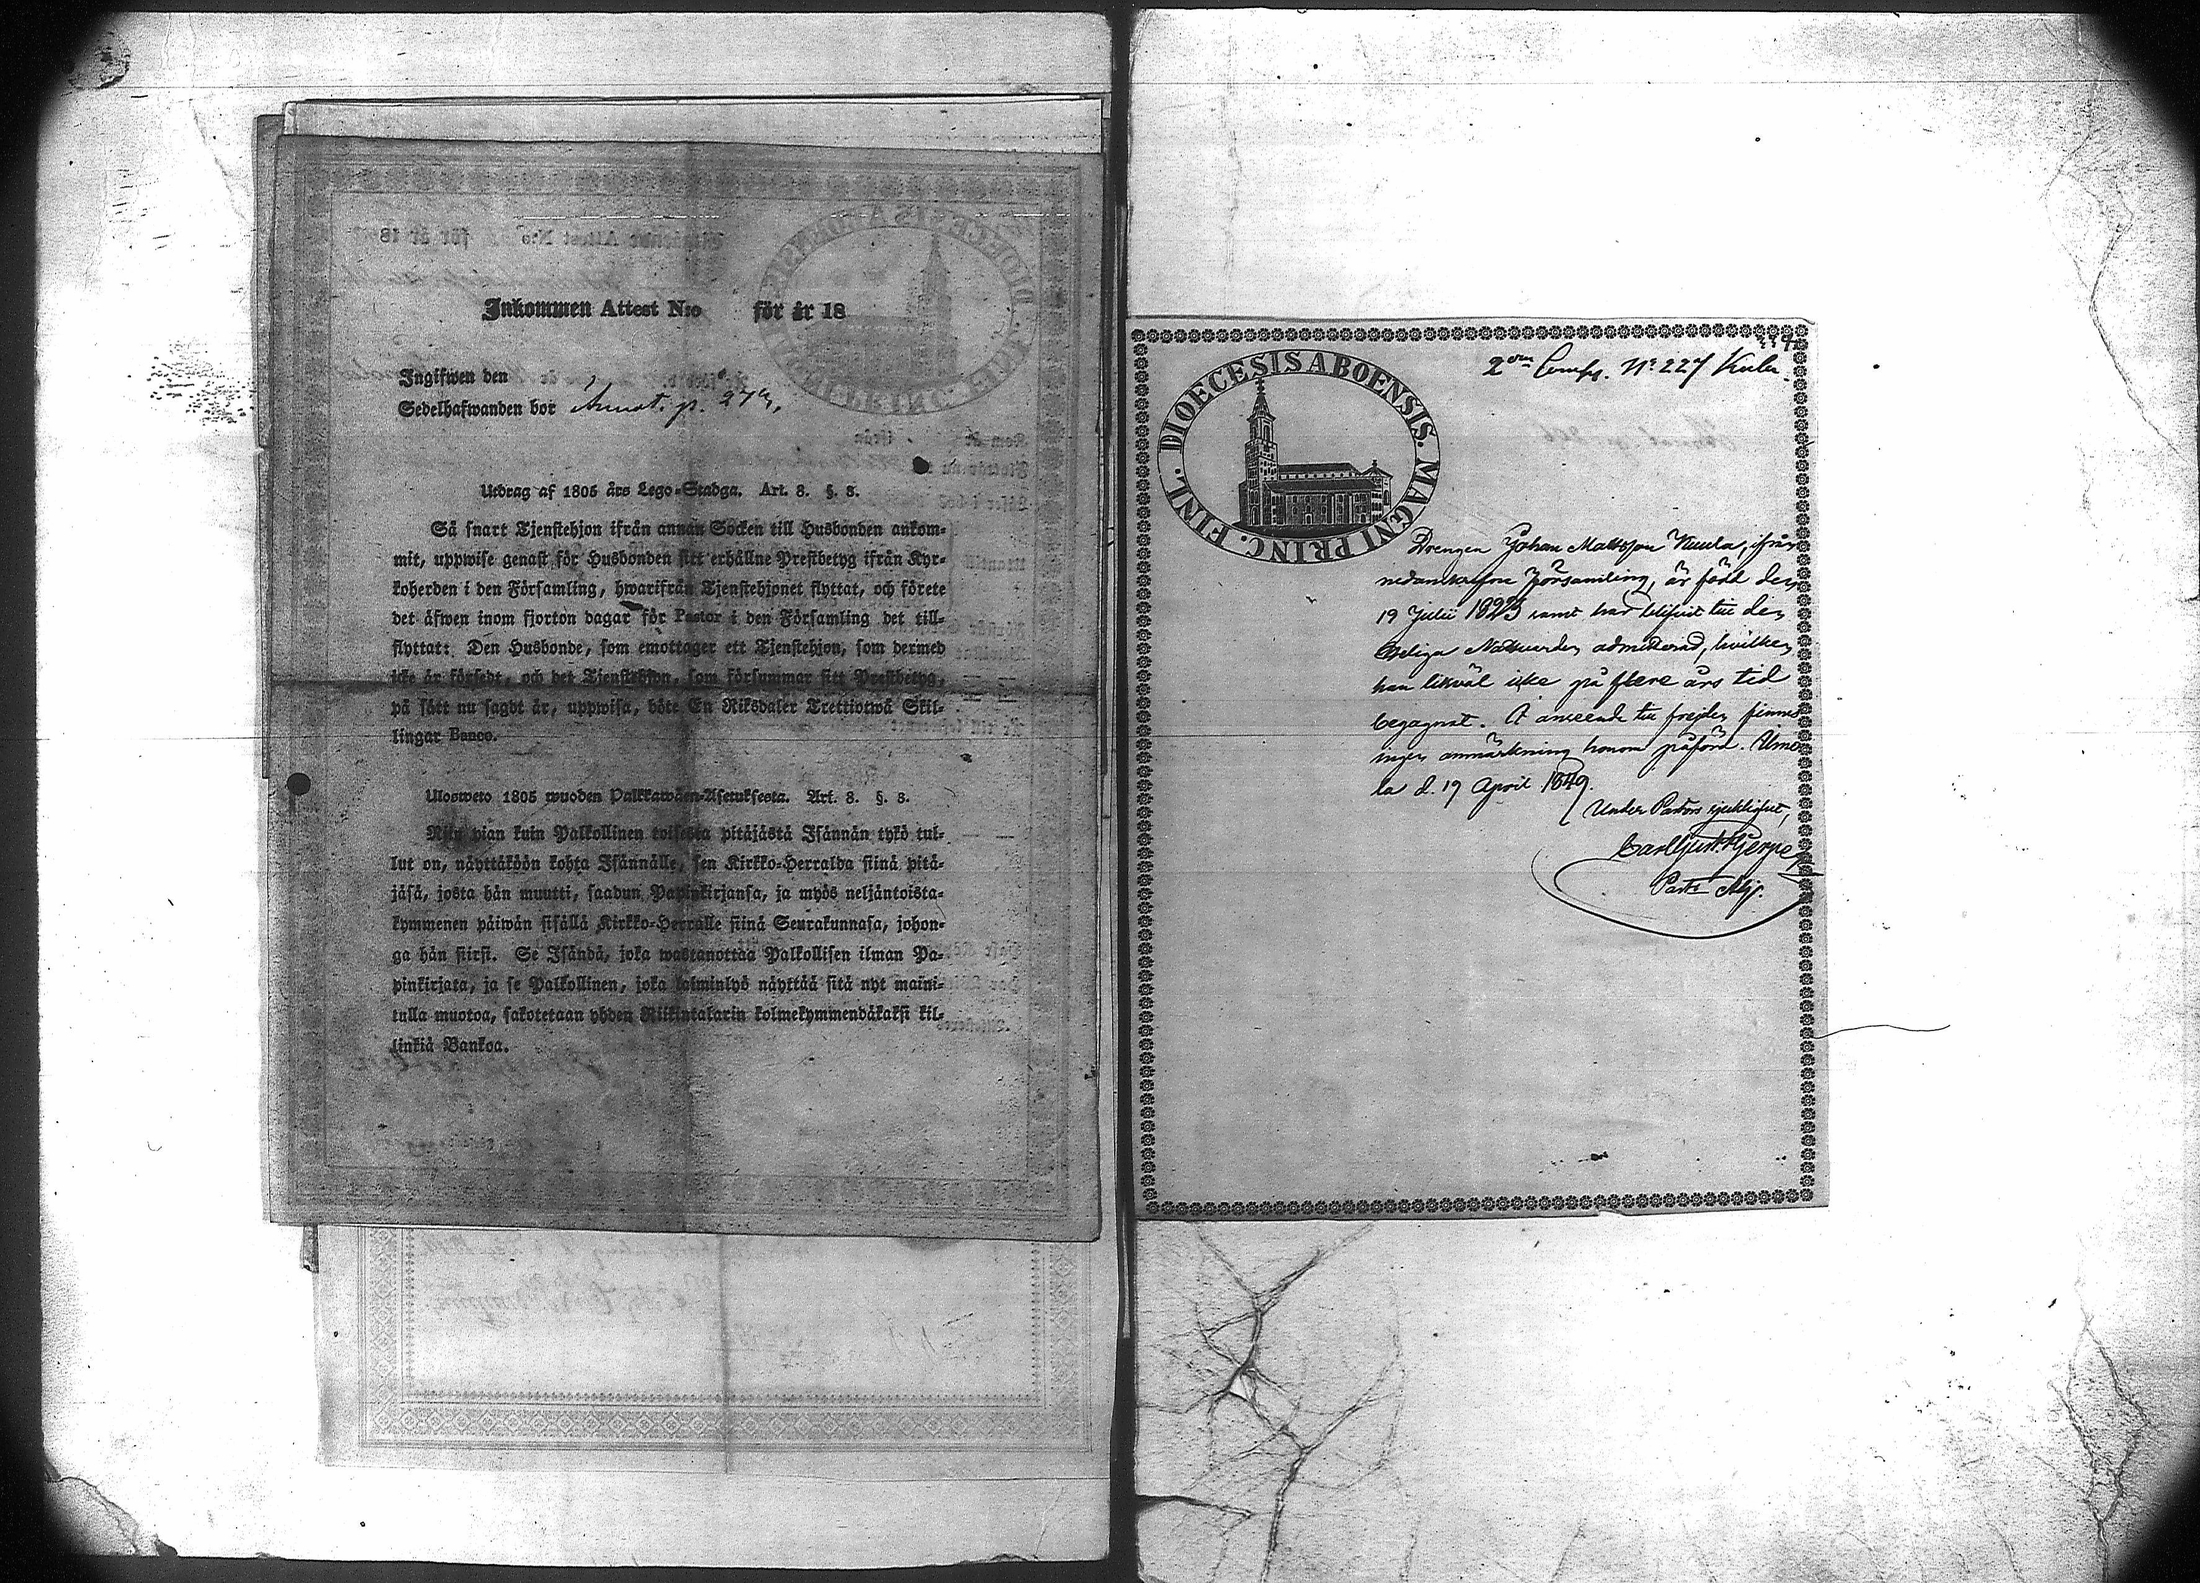 Inkommen Attest N:o för år 18
Ingifwen den
Sedelhafwanden bor Annot. p. 279.
Utdrag af 1805 års Lego-Stadga. Art. 3. §. 8.
Så snart Tjenstehjon ifrån annan Socken till Husbonden ankom-
mit, uppwise genast för Husbonden sitt erhållne Prestbetyg ifrån Kyr-
koherden i den Församling, hwarifrån Tjenstehjonet flyttat, och förete
det äfwen inom fjorton dagar för Pastor i den Församling det till-
flyttat: Den Husbonde, som emottager ett Tjenstehjon, som dermed
icke är försedt, och det Tjenstehjon, som försummar sitt Prestbetyg,
på sätt nu sagdt är, uppwisa, böte En Riksdaler Trettiotwå Skil-
lingar Banco.
Ulosweto 1805 wuoden Palkkawäen-Asetuksesta. Art. 3. §. 8.
Niin pian kuin Palkollinen toisesta pitäjästä Isännän tykö tul-
lut on, näyttäköön kohta Isännälle, sen Kirkko-Herralda siinä pitä-
jäsä, josta hän muutti, saadun Papinkirjansa, ja myös neljäntoista-
kymmenen päiwän sisällä Kirkko-Herralle siinä Seurakunnasa, johon-
ga hän siirsi. Se Isändä, joka wastanottaa Palkollisen ilman Pa-
pinkirjata, ja se Palkollinen, joka laiminlyö näyttää sitä nyt maini-
tulla muotoa, sakotetaan yhden Riikintalarin kolmekymmendäkaksi kil-
linkiä Bankoa.
DIOECESIS ABOENSIS. MAGNI PRINC. FINL.
2 Comp. N:o 227
Drengen Johan Mattsson Kuula, ifrån
nedanskrefne Församling, är född den
19 Julii 1823 samt har blifvit till den
Heliga Nattvarden admitterad, hvilken
han likväl icke på flere års tid
begagnat. I anseende till frejden finnes
ingen anmärkning honom påförd. Ume
la d. 19 April 1849.
Under Pastors sjuklighet,
Carl Gust. Hjerpe
Past. Adj.